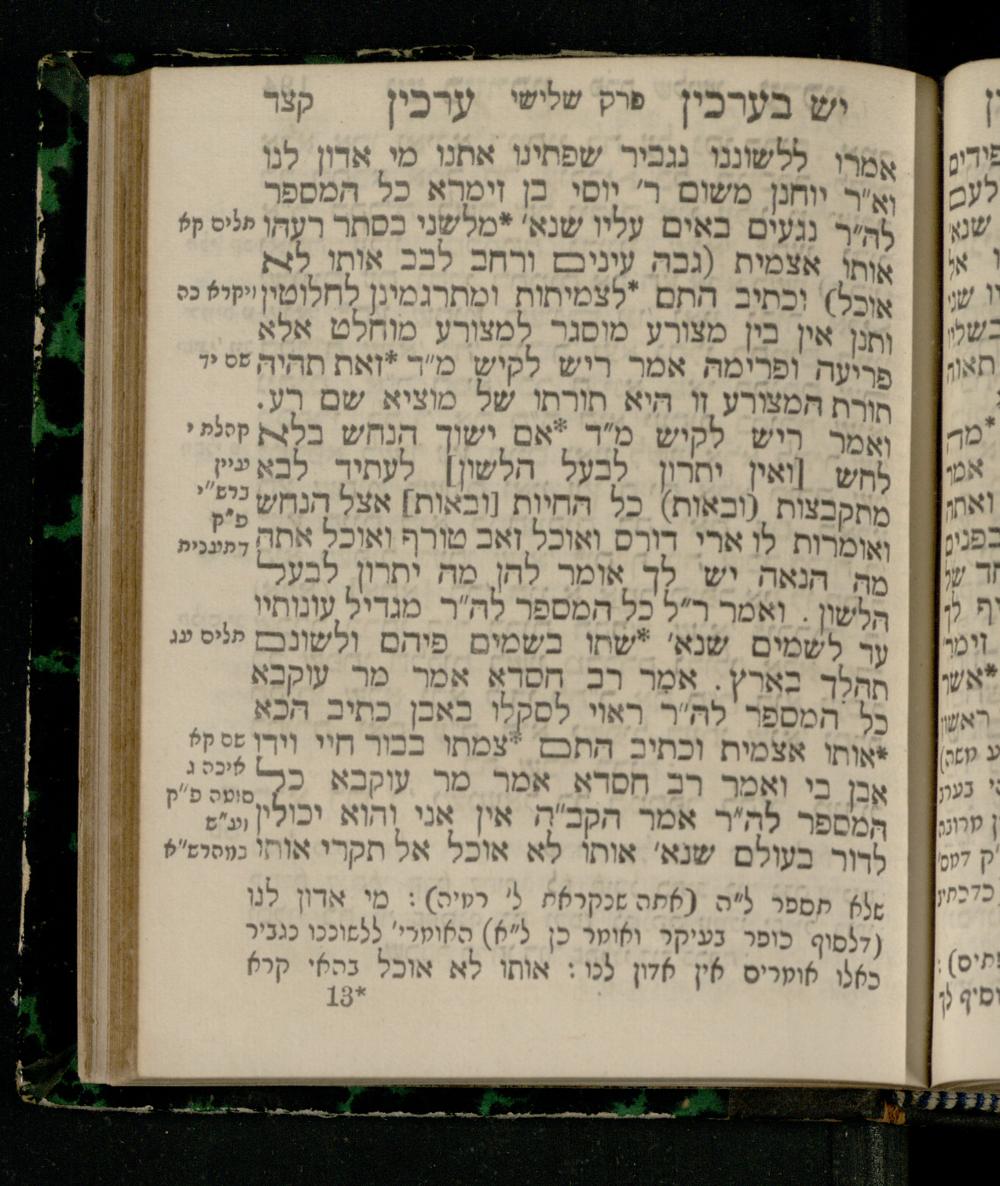 יש בערכין פרק שלישי ערכין קצד
אמרו ללשוננו נגביר שפתינו אתנו מי אדון לנו
וא״ר יוחנן משום ר׳ יוסי בן זימרא כל המספר
לה״ר נגעים באים עליו שנא׳ *מלשני בסתר רעהו
אותו אצמית (גבה עינים ורחב לבב אותו לא
אוכל) וכתיב התם *לצמיתות ומתרגמינן לחלוטין
ותנן אין בין מצורע מוסגר למצורע מוחלט אלא
פריעה ופרימה אמר ריש לקיש מ״ד *זאת תהיה
תורת המצורע זו היא תורתו של מוציא שם רע.
ואמר ריש לקיש מ״ד *אם ישוך הנחש בלא
לחש [ואין יתרון לבעל הלשון] לעתיד לבא
מתקבצות (ובאות) כל החיות [ובאות] אצל הנחש
ואומרות לו ארי דורס ואוכל זאב טורף ואוכל אתה
מה הנאה יש לך אומר להן מה יתרון לבעל
הלשון. ואמר ר״ל כל המספר לה״ר מגדיל עונותיו
עד לשמים שנא׳ *שתו בשמים פיהם ולשונם
תהלך בארץ. אמר רב חסדא אמר מר עוקבא
כל המספר לה״ר ראוי לסקלו באבן כתיב הכא
*אותו אצמית וכתיב התם *צמתו בבור חיי וידו
אבן בי ואמר רב חסדא אמר מר עוקבא כל
המספר לה״ר אמר הקב״ה אין אני והוא יכולין
לדור בעולם שנא׳ אותו לא אוכל אל תקרי אותו
תליס קא
ויקרא כה
שם יד
קהלת י
עיין
ברש״י
פ״ק
דתענית
תליס עג
שם קא
איכה ג
סוטה פ״ק
וע״ש
במהרש״א
שלא תספר ל״ה (אתה שנקראת ל׳ רמיה): מי אדון לנו
(דלסוף כופר בעיקר ואומר כן ל״א) האומרי׳ ללשוננו נגביר
כאלו אומרים אין אדון לנו: אותו לא אוכל בהאי קרא
13*